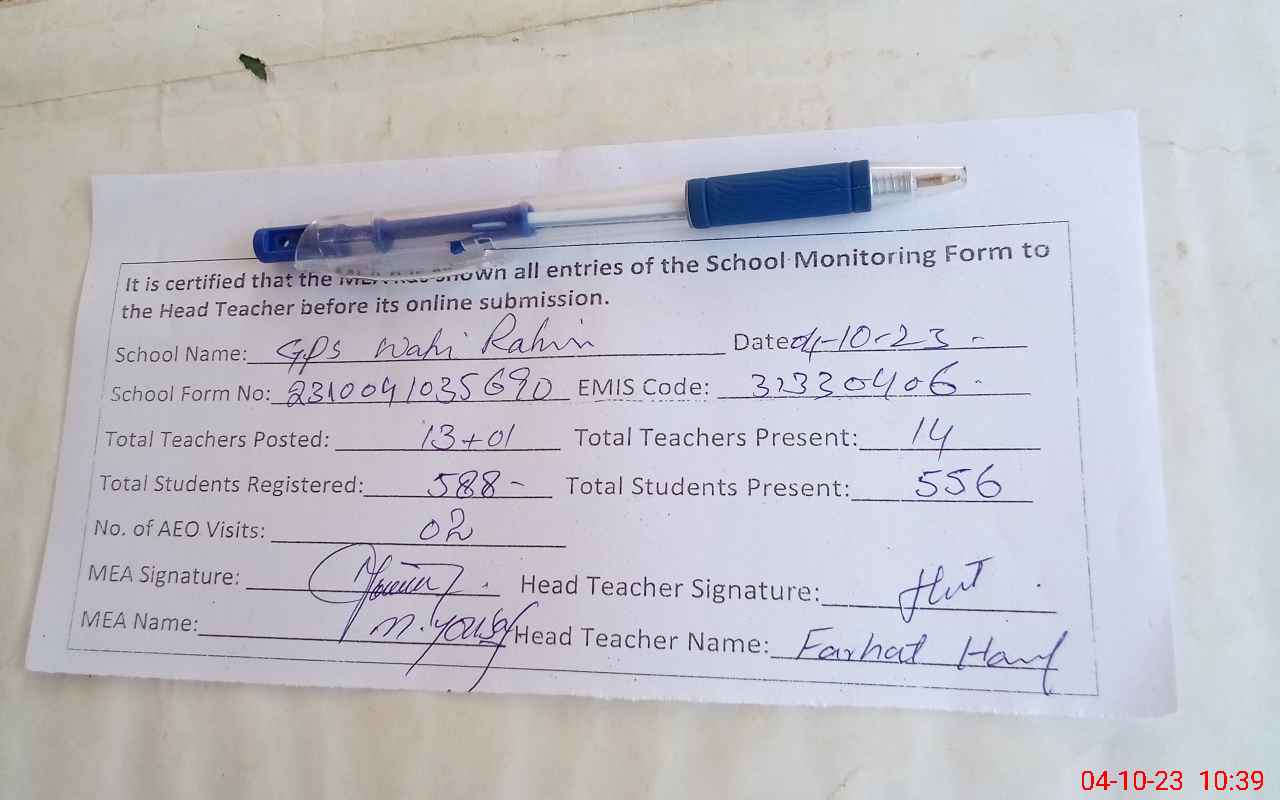 It is certified that the MEA has shown all entries of the School Monitoring Form to
the Head Teacher before its online submission.
School Name: GPS Wahi Rahim Date 04-10-23
School Form No: 2310041035690 EMIS Code: 31330406
Total Teachers Posted: 13+01 Total Teachers Present: 14
Total Students Registered: 588 Total Students Present: 556
No. of AEO Visits: 02
MEA Signature: Head Teacher Signature:
MEA Name: M. Yousaf Head Teacher Name: Farhat Hanif
04-10-23 10:39